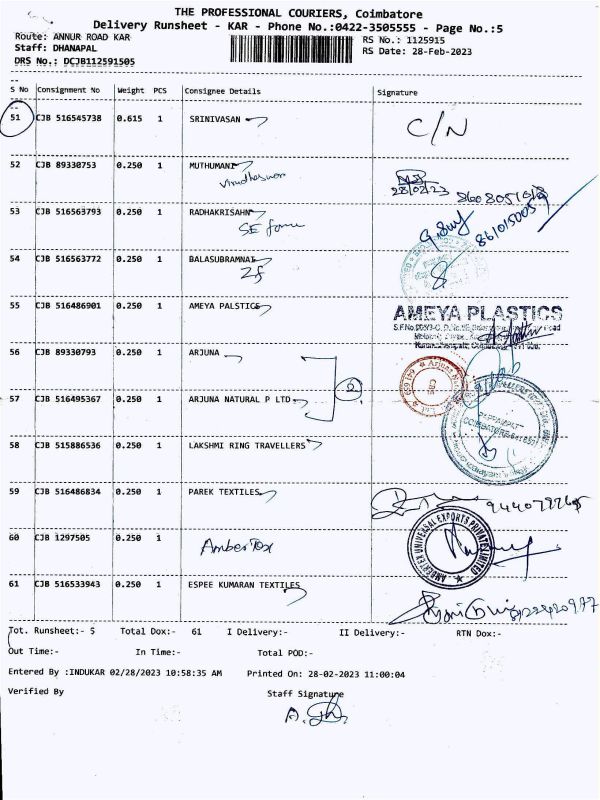 THE PROFESSIONAL COURIERS, Coimbatore
Delivery Runsheet - KAR - Phone No.:0422-3505555 - Page No.:5
Route: ANNUR ROAD KAR RS No.: 1125915
Staff: DHANAPAL RS Date: 28-Feb-2023
DRS No.: DCJB112591505
S No Consignment No Weight PCS Consignee Details Signature
51 CJB 516545738 0.615 1 SRINIVASAN C/N
52 CJB 89330753 0.250 1 MUTHUMANI
28/02/23
53 CJB 516563793 0.250 1 RADHAKRISAHN
SE force
54 CJB 516563772 0.250 1 BALASUBRAMNAI
ZF
55 CJB 516486901 0.250 1 AMEYA PALSTICS AMEYA PLASTICS
56 CJB 89330793 0.250 1 ARJUNA
2
57 CJB 516495367 0.250 1 ARJUNA NATURAL P LTD
58 CJB 515886536 0.250 1 LAKSHMI RING TRAVELLERS
59 CJB 516486834 0.250 1 PAREK TEXTILES
60 CJB 1297505 0.250 1 Amber Tex
61 CJB 516533943 0.250 1 ESPEE KUMARAN TEXTILES
Tot. Runsheet:- 5 Total Dox:- 61 I Delivery:- II Delivery:- RTN Dox:-
Out Time:- In Time:- Total POD:-
Entered By :INDUKAR 02/28/2023 10:58:35 AM Printed On: 28-02-2023 11:00:04
Verified By Staff Signature